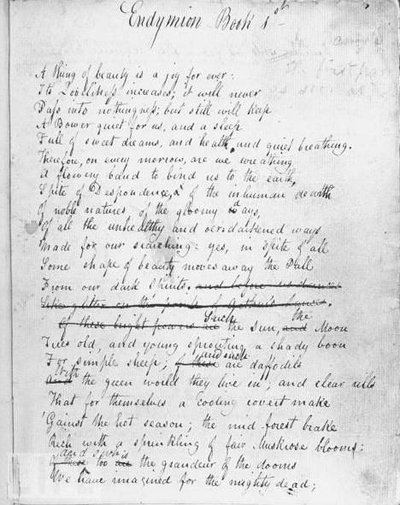 Endymion Book 1st
A thing of beauty is a joy for ever:
Its Loveliness increases; it will never
Pass into nothingness; but still will keep
A Bower quiet for us, and a sleep
Full of sweet dreams, and health, and quiet breathing.
Therefore, on every morrow, are we wreathing
A flowery band to bind us to the earth,
Spite of Despondence, of the inhuman dearth
Of noble natures, of the gloomy days,
Of all the unhealthy and oer-darkened ways
Made for our searching: yes, in spite of all
Some shape of beauty moves away the Pall
From our dark Spirits. and before us dances
Like glitter on the points of Arthur's Lances.
Of these bright powers are Such the Sun, and the Moon
Trees old, and young sprouting a shady boon
For simple sheep; of these and such are daffodils
and With the green world they live in; and clear rills
That for themselves a cooling covert make
'Gainst the hot season; the mid forest brake
Rich with a sprinkling of fair Muskrose blooms:
of these too are and such is the grandeur of the dooms
We have imagined for the mighty dead;